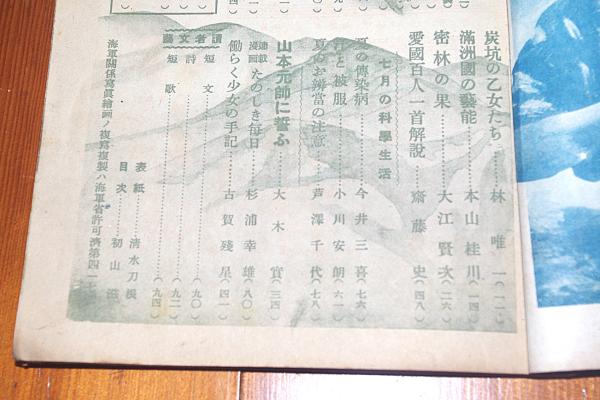 炭坑の乙女たち……林唯一(一二)
滿洲國の藝能……本山桂川(一四)
密林の果……大江賢次(二六)
愛國百人一首解說……齋藤史(四八)
七月の科學生活
夏の傳染病……今井三喜(七六)
汗と被服……小川安朗(六一)
夏のお辨當の注意……芦澤千代(七八)
山本元帥に誓ふ……大木實(三四)
連載漫画 たのしき每日……杉浦幸雄(八〇)
働らく少女の手記……古賀殘星(四一)
讀者文藝
短文……(九〇)
詩……(九二)
短歌……(九四)
表紙……淸水刀根
目次……初山滋
海軍關係寫眞繪画ノ複寫複製ハ海軍省許可濟第四一七